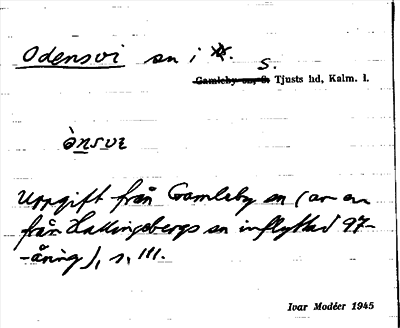 Odensvi sn i
S.
Gamleby sn, S. Tjusts hd, Kalm. l.
ònsvɩ
Uppgift från Gamleby sn (av en
från Hallingebergs sn inflyttad 97-
-åring), s. 111.
Ivar Modéer 1945